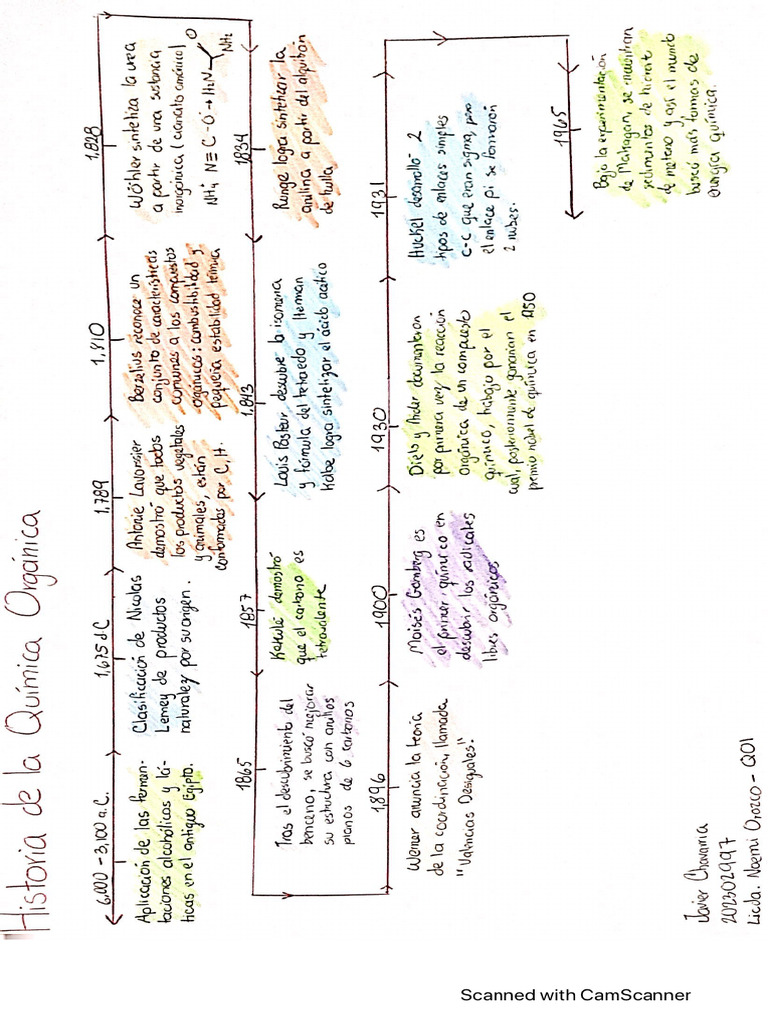 Historia de la Química Orgánica
6,000 - 3,100 a.C.
Aplicación de las fermen-
taciones alcohólicas y lá-
ticas en el antiguo Egipto.
1,675 d.C
Clasificación de Nicolas
Lemey de productos
naturalez por su origen.
1,789
Antonie Lavoisier
demostró que todos
los productos vegetales
y animales, están
conformados por C, H.
1,810
Berzelius reconoce un
conjunto de características
comunes a los compuestos
orgánicos: combustibilidad y
pequeña estabilidad térmica
1,828
Wöhler sintetiza la urea
a partir de una sustancia
inorgánica (cianato amónico)
NH₄ N≡C-O⁻→H₂N
O
NH₂
1834
Runge logra sintetizar la
anilina a partir del alquitrán
de hulla.
1,843
Louis Pasteur descubre la isomería
y fórmula del tetraedo y Herman
Kolbe logra sintetizar el ácido acético
1857
Kekulé demostró
que el carbono es
tetravalente
1865
Tras el descubrimiento del
benceno, se buscó mejorar
su estructura con anillos
planos de 6 carbonos
1,896
Werner anuncia la teoría
de la coordinación, llamada
"Valencias Desiguales".
1900
Moisés Gomberg es
el primer químico en
descubrir los radicales
libres orgánicos
1930
Diels y Alder documentaron
por primera vez la reacción
orgánica de un compuesto
químico, trabajo por el
cual, posteriormente ganarían el
premio nobel de química en 1950
1931
Huckel desarrolló 2
tipos de enlaces simples
C-C que eran sigma, pero
el enlace pi se formaron
2 nubes.
1965
Bajo la experimentación
de Matragan, se encuentran
sedimentos de hicrato
de metano y así el mundo
buscó más formas de
energía química.
Javier Chavarria
202302997
Licda. Noemi Orozco - Q01
Scanned with CamScanner